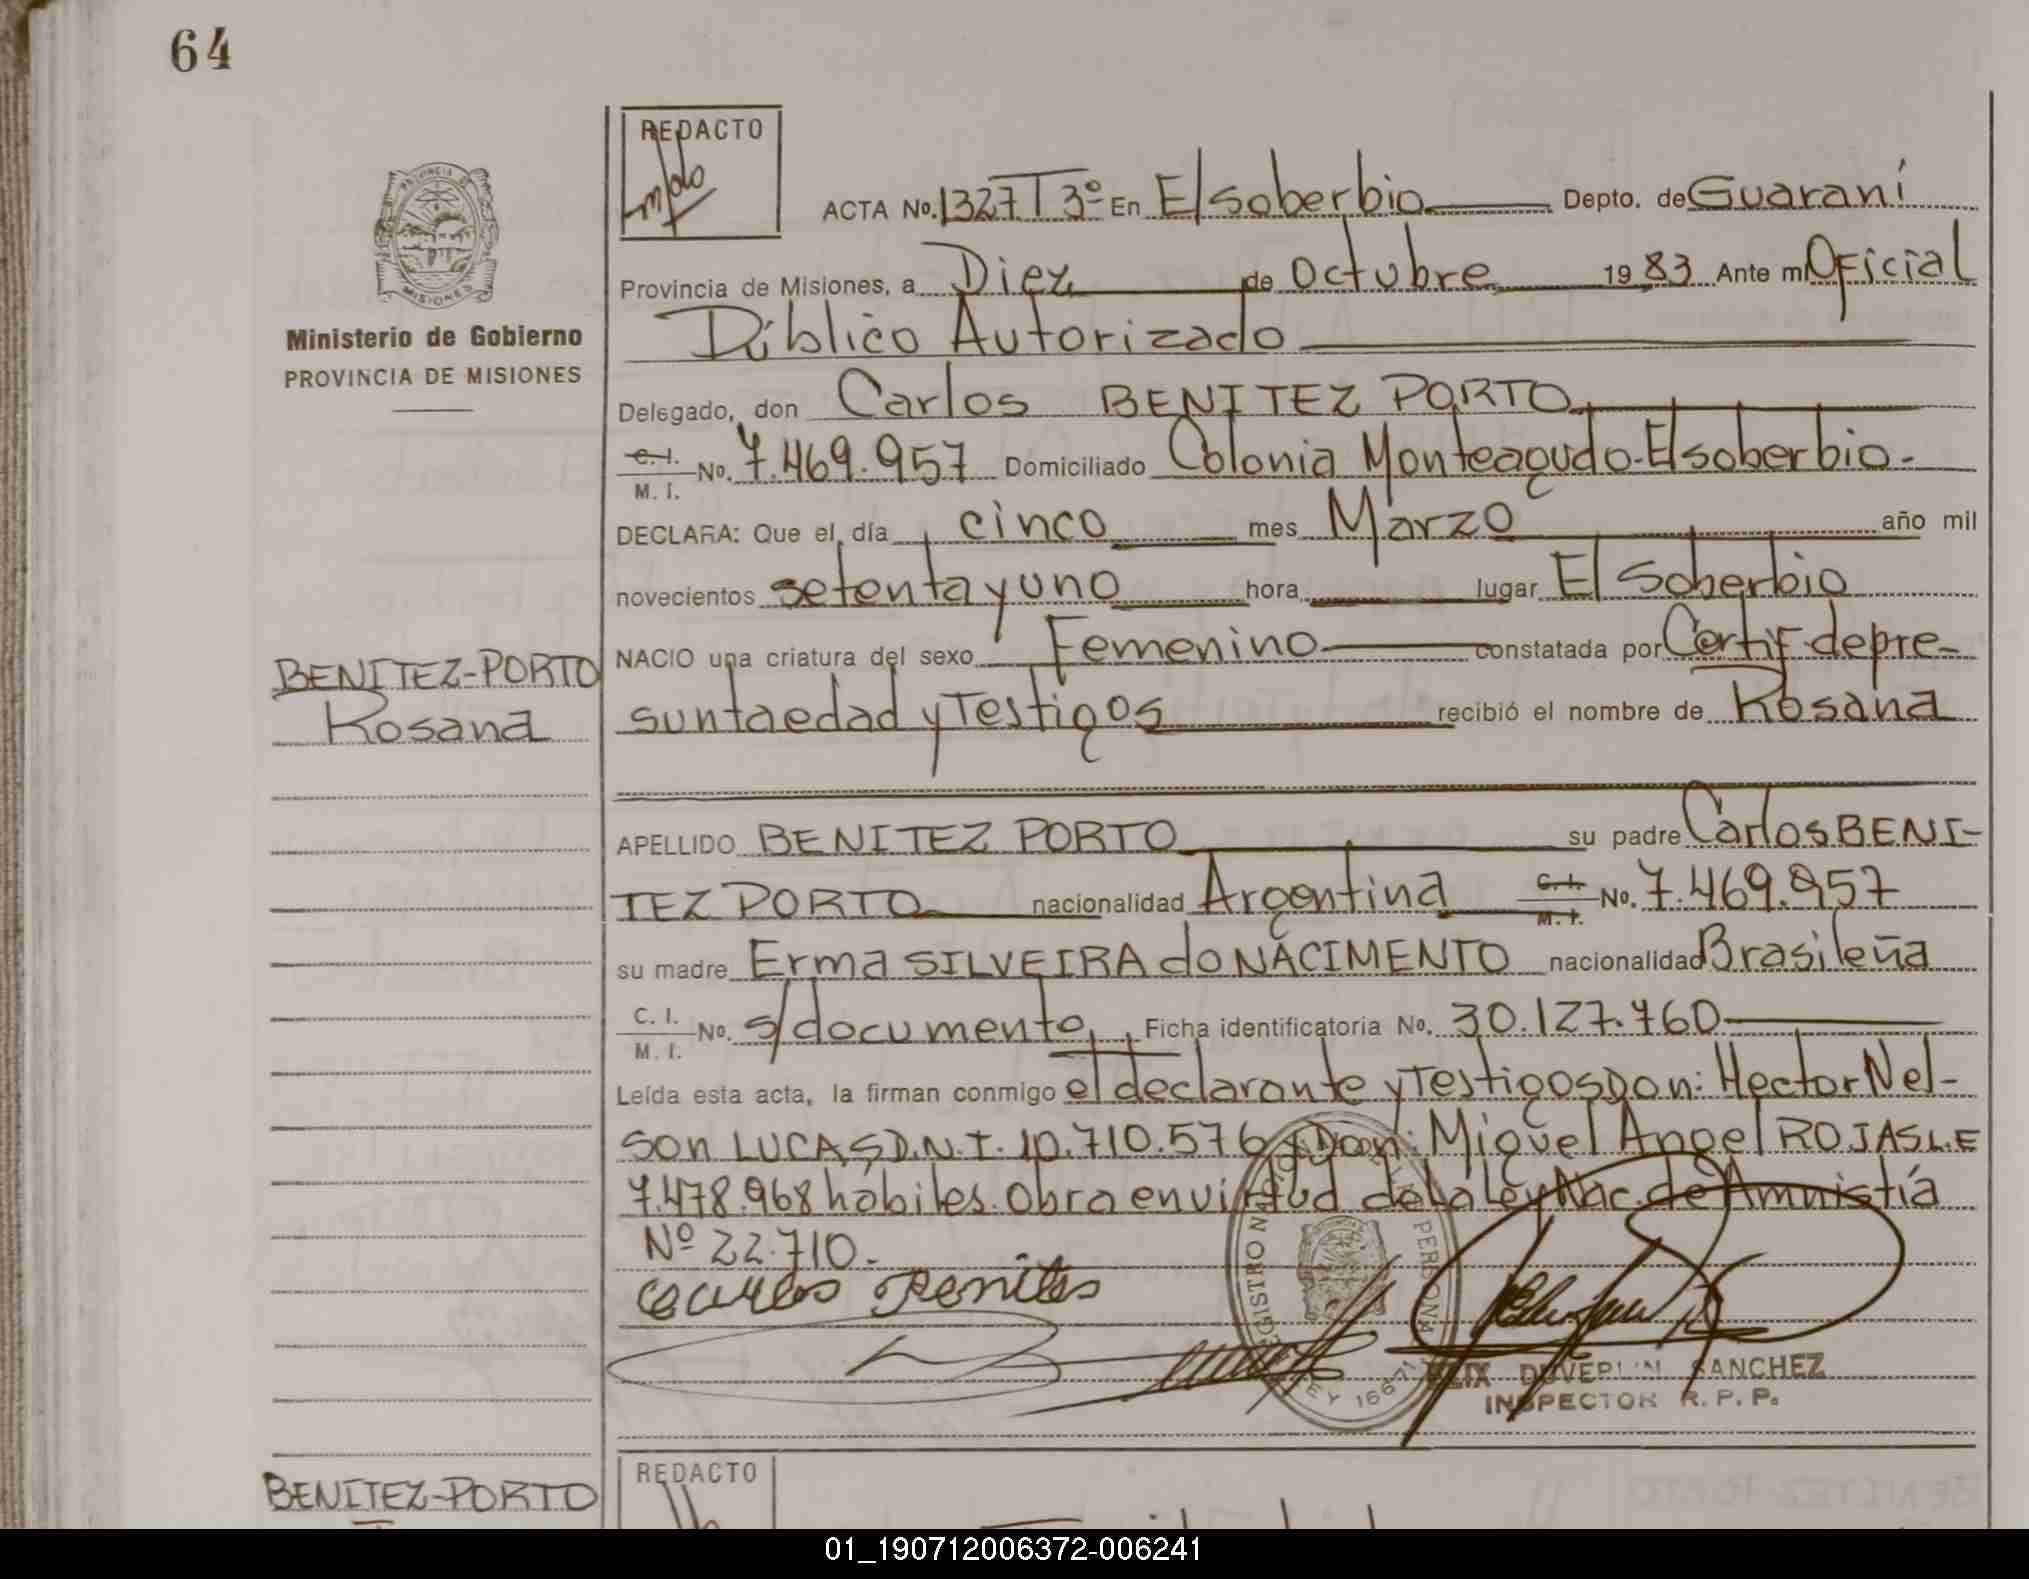 64
REDACTO
ACTA No. 1327 T 3º En El soberbio Depto. de Guaraní
Provincia de Misiones, a Diez de Octubre 1983 Ante mí Oficial
Público Autorizado
Delegado, don Carlos BENITEZ PORTO
C. I. M. I. No. 7.469.957 Domiciliado Colonia Monteagudo-El soberbio-
DECLARA: Que el día cinco mes Marzo año mil
novecientos setenta y uno hora lugar El Soberbio
NACIO una criatura del sexo Femenino constatada por Certif. de pre-
sunta edad y Testigos recibió el nombre de Rosana
APELLIDO BENITEZ PORTO su padre Carlos BENI-
TEZ PORTO nacionalidad Argentina C. I. M. I. No. 7.469.957
su madre Erma SILVEIRA do NACIMENTO nacionalidad Brasileña
C. I. M. I. No. s/documento Ficha identificatoria No. 30.127.760
Leída esta acta, la firman conmigo el declarante y Testigos Don: Hector Nel-
son LUCAS D.N.I. 10.710.576 y Don: Miguel Angel ROJAS L.E
7.478.968 hábiles. Obra en virtud de la Ley Nac. de Amnistía
Nº 22.710.-
Carlos Benites
REGISTRO PERSONAS LEY 16671
SANCHEZ
INSPECTOR R. P. P.
PROVINCIA DE MISIONES
Ministerio de Gobierno
PROVINCIA DE MISIONES
BENITEZ-PORTO
Rosana
BENITEZ-PORTO
REDACTO
01_190712006372-006241